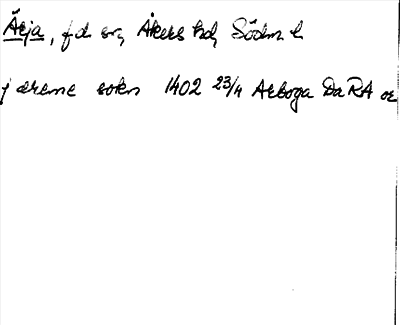 Ärja, f d sn, Åkers hd, Södm l
j ærene sokn 1402 23/4 Arboga Da RA or